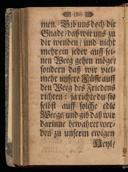 men. Gib uns doch die
Gnade/ daß wir uns zu
dir wenden/ und nicht
mehr ein jeder auff sei-
nen Weg gehen möge/
sondern daß wir viel-
mehr unsere Füsse auff
den Weg des Friedens
richten: ja richte du sie
selbst auff solche die
Wege/ und gib daß wir
darinne bewahret wer-
den zu unserm ewigen
Heyl/